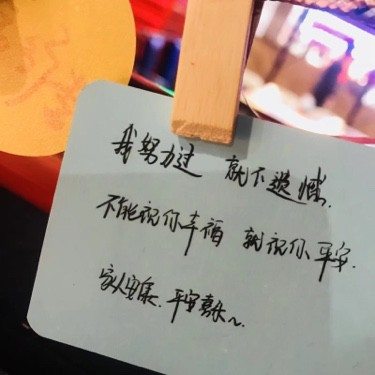 我努力过 就不遗憾.
不能祝你幸福 就祝你平安.
家人安康.平安喜乐~